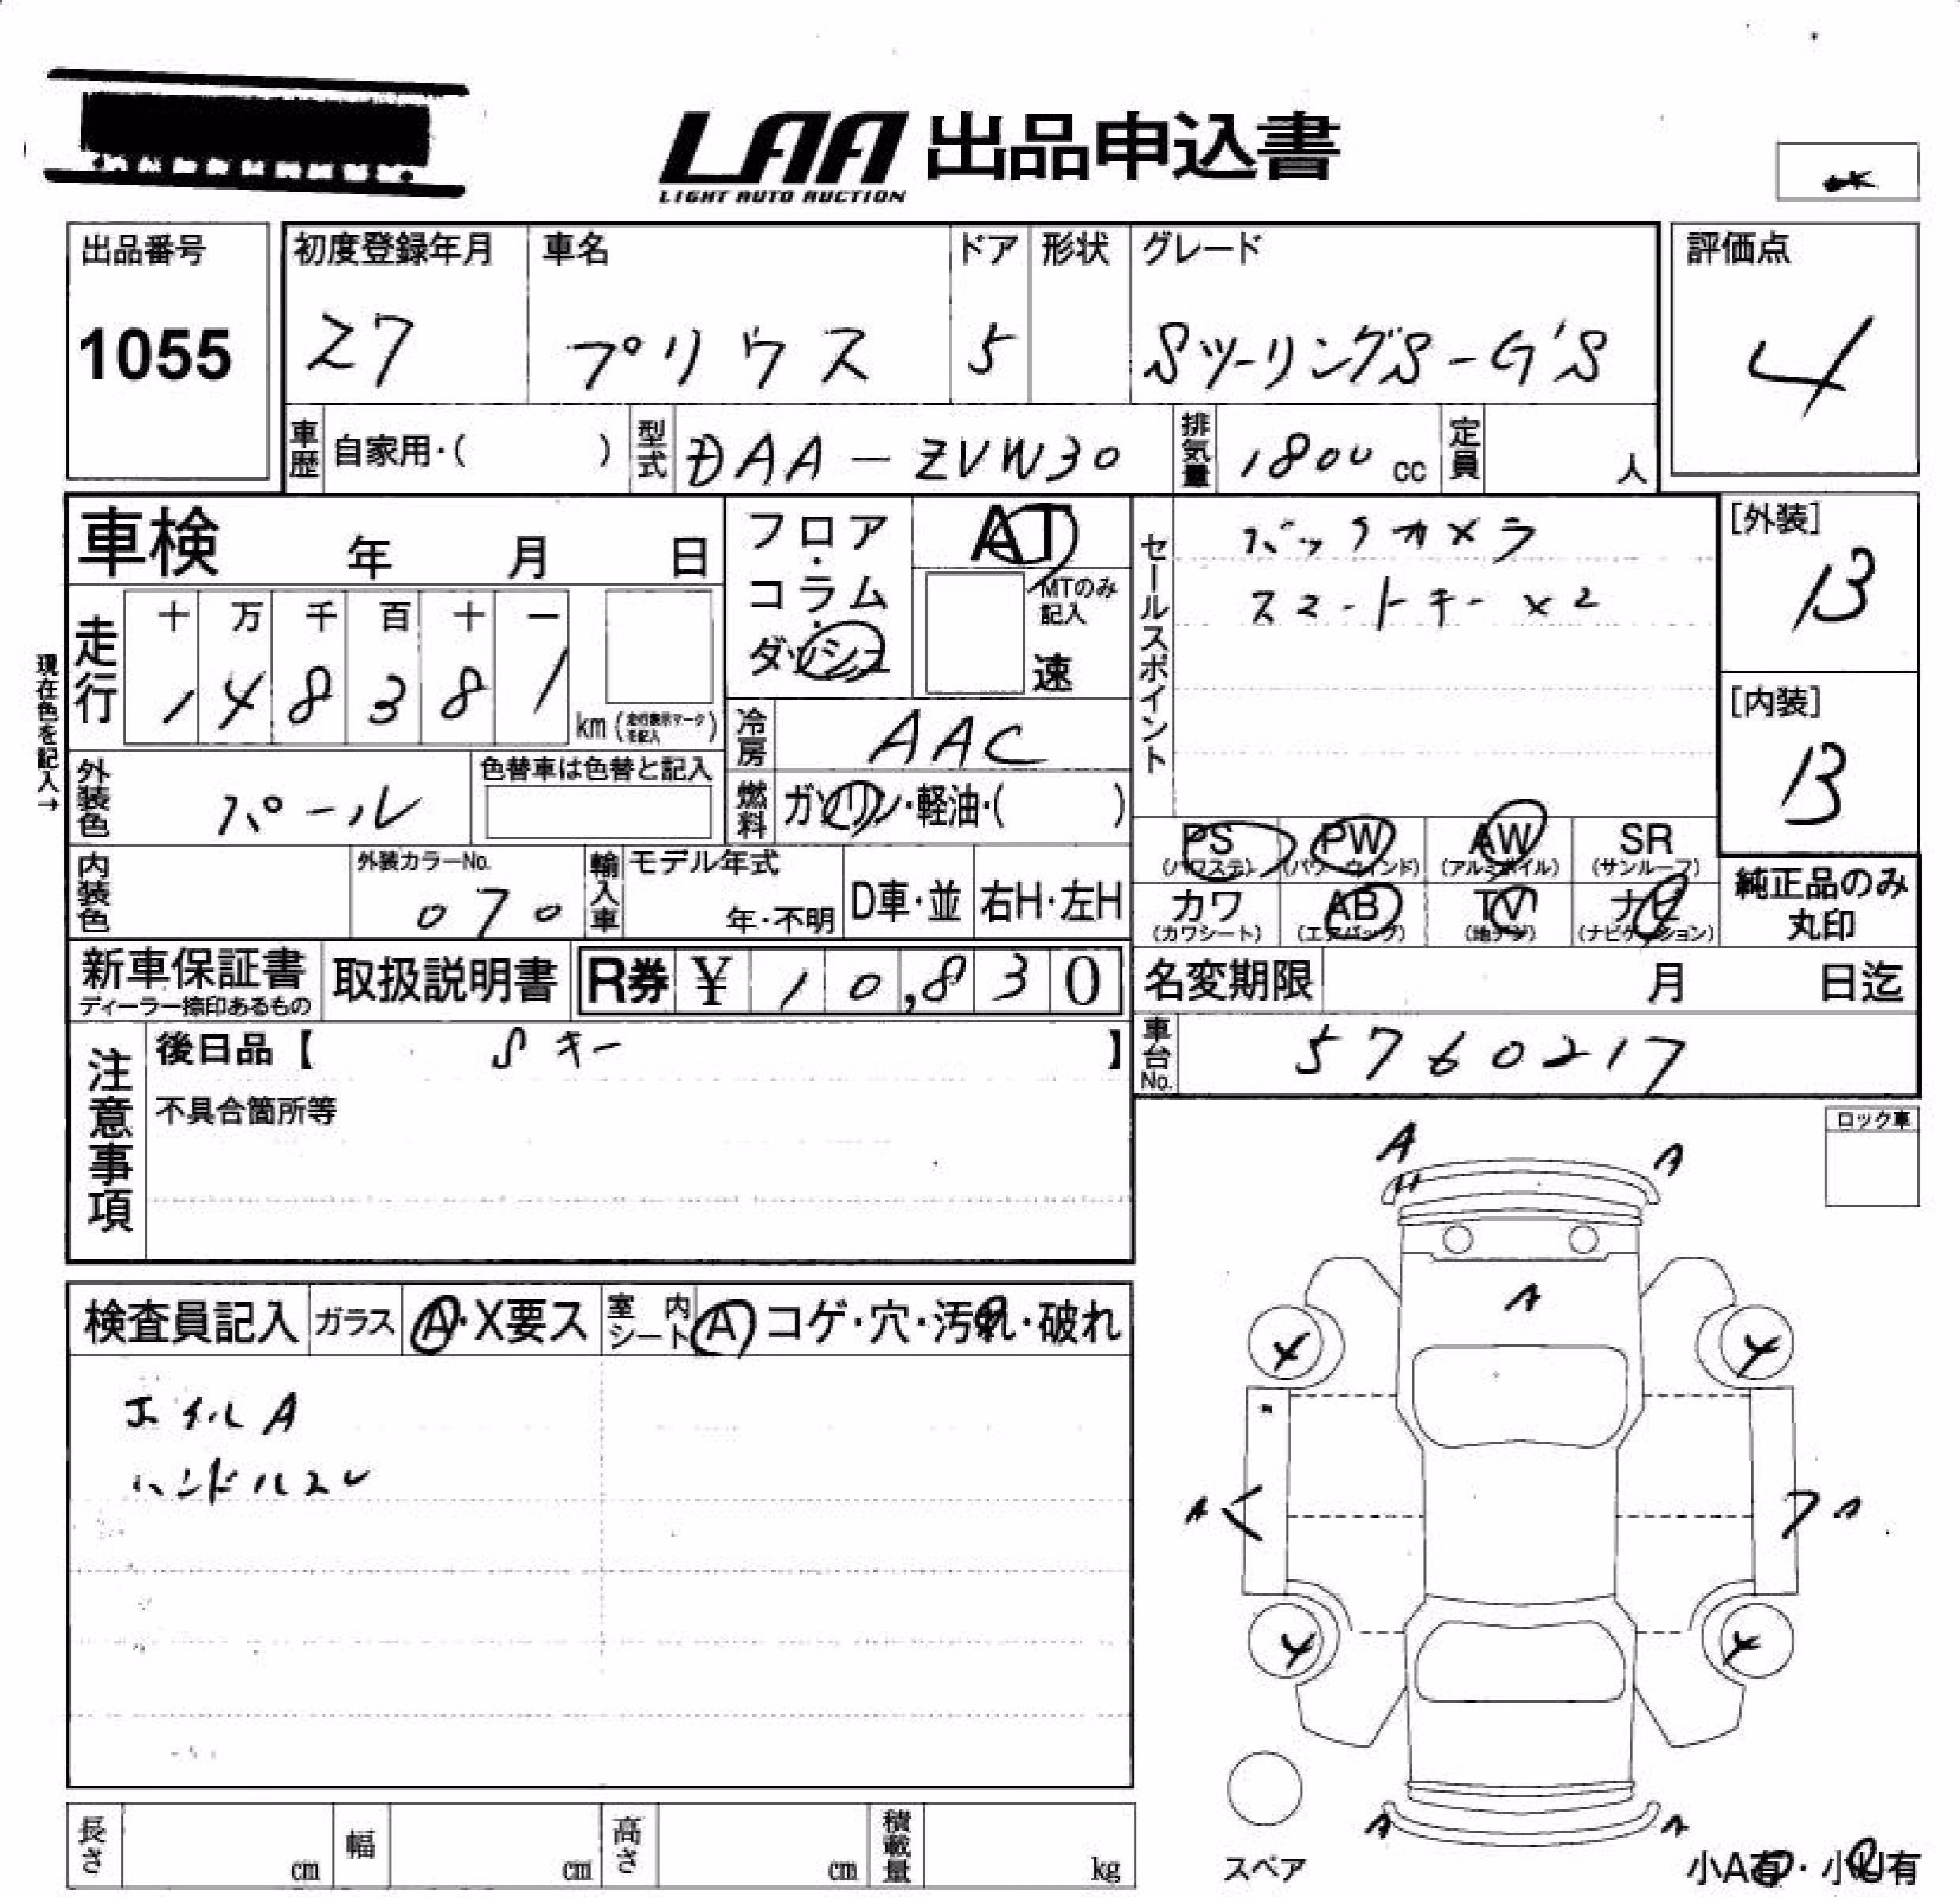 LAA 出品申込書
LIGHT AUTO AUCTION
出品番号 初度登録年月 車名 ドア 形状 グレード 評価点
1055 27 プリウス 5 SツーリングS-G'S 4
車歴 自家用・( ) 型式 DAA-ZVW30 排気量 1800 cc 定員 人
車検 年 月 日
フロア・コラム・ダッシュ
AT
MTのみ記入
速
セールスポイント
バックカメラ
スマートキー×2
[外装]
B
[内装]
B
現在色を記入→
走行 十 万 千 百 十 一
1 4 8 3 8 1 km (走行表示マークを記入)
冷房 AAC
外装色 パール 色替車は色替と記入
燃料 ガソリン・軽油・( )
PS (パワステ) PW (パワーウィンド) AW (アルミホイル) SR (サンルーフ)
カワ (カワシート) AB (エアバッグ) TV (地デジ) ナビ (ナビゲーション)
純正品のみ丸印
内装色 外装カラーNo. 070 輸入車 モデル年式 年・不明 D車・並 右H・左H
新車保証書 ディーラー捺印あるもの 取扱説明書 R券 ¥ 10,830 名変期限 月 日迄
車台No. 5760217
注意事項
後日品【 Sキー 】
不具合箇所等
ロック車
A A
A
検査員記入 ガラス A・X要ス 室内シート A コゲ・穴・汚れ・破れ
ホイルA
ハンドルスレ
A A
A A
スペア
小A有・小U有
長さ cm 幅 cm 高さ cm 積載量 kg